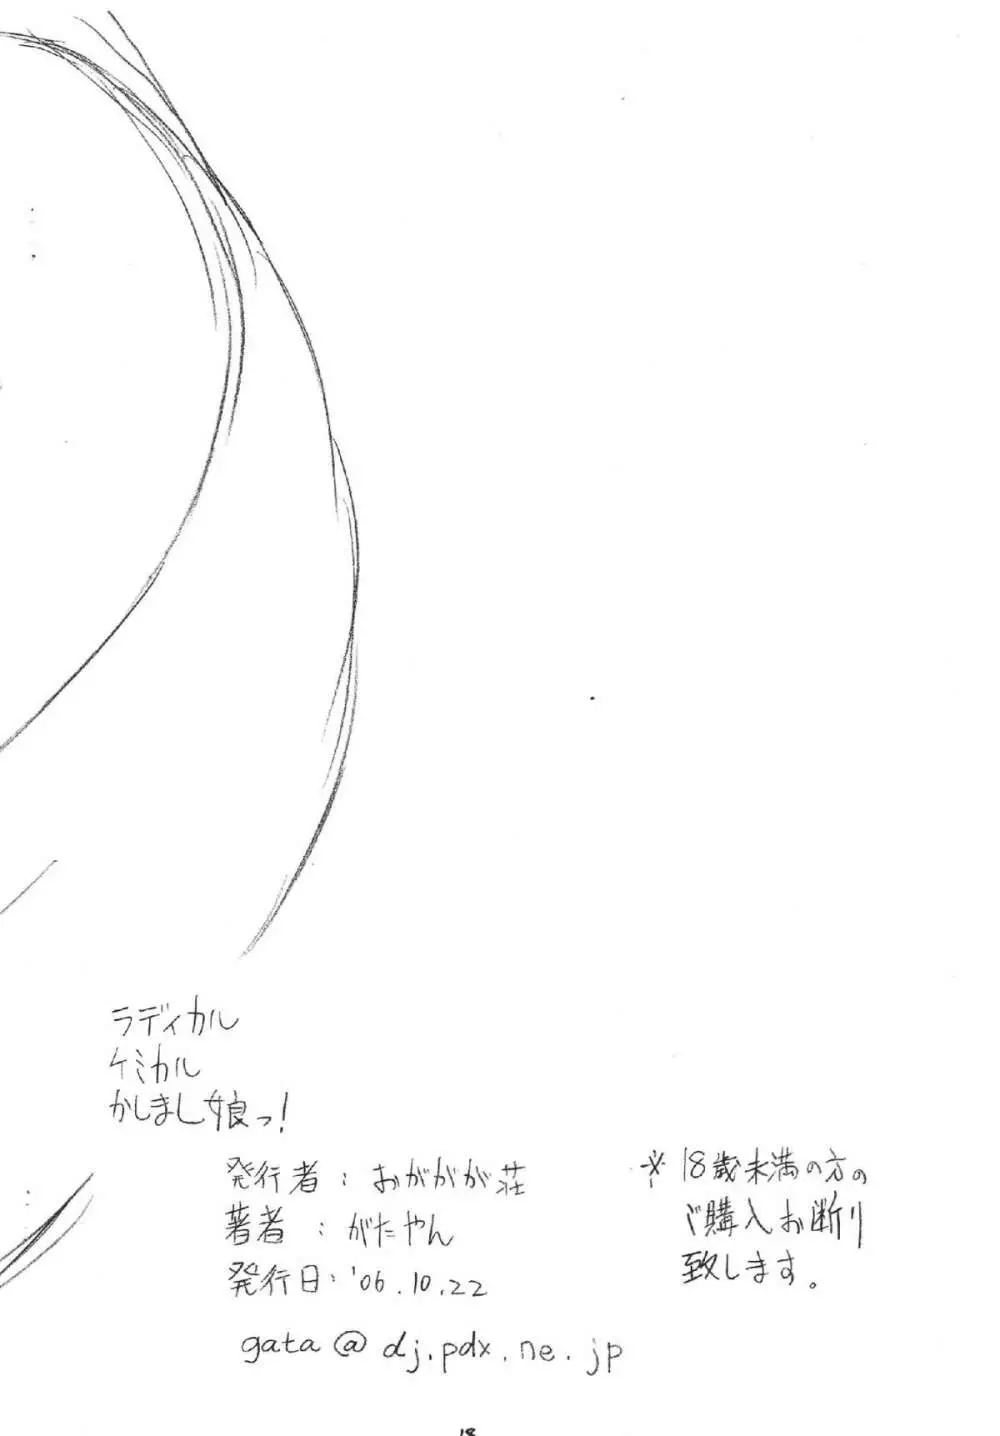 ラディカル
ケミカル
かしまし娘っ!
発行者:おががが荘
著者:がたやん
発行日:'06.10.22
gata@dj.pdx.ne.jp
※18歳未満の方の
ご購入お断り
致します。
18